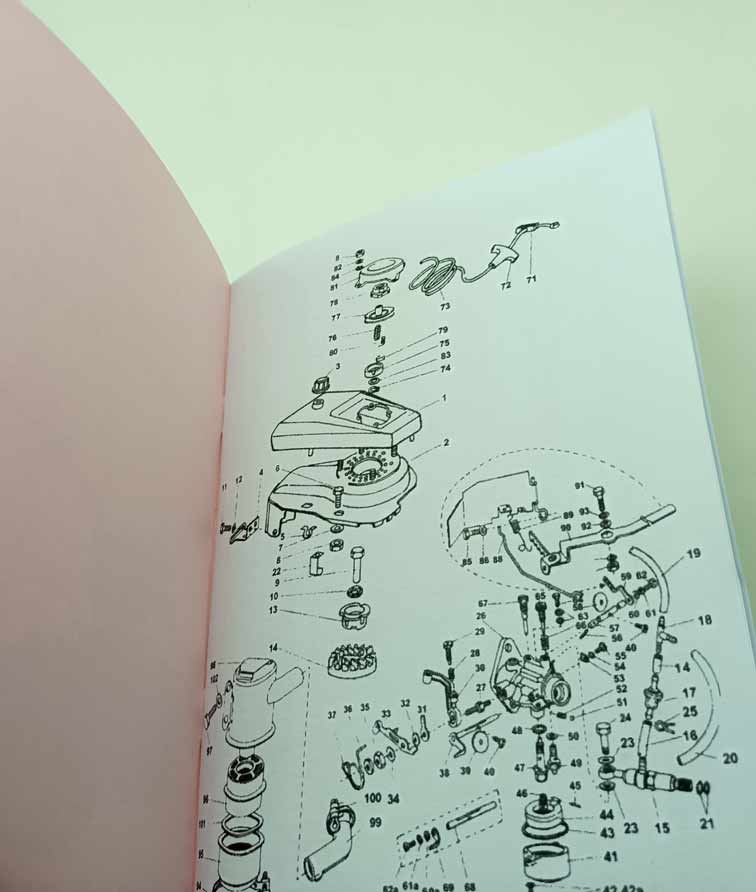 8
82
84
81
78
77
76
80
3
79
75
83
74
1
2
72
71
73
11
12
4
6
5
7
8
22
9
10
13
14
91
93
92
89
90
85
86
88
19
59
62
67
65
58
63
60
61
66
57
56
18
26
29
28
30
27
40
55
54
53
52
51
14
17
25
16
20
98
102
97
37
36
35
33
32
31
38
39
40
48
50
47
49
24
23
46
45
44
43
23
15
21
100
34
99
96
101
95
94
41
62a
61a
60a
69
68
42
42a